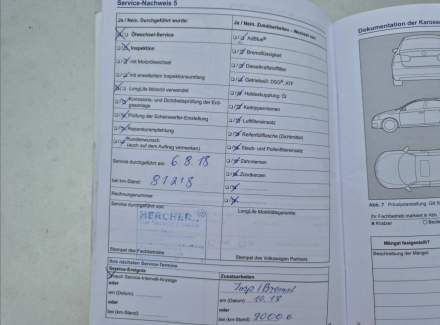 Service-Nachweis 5
Ja / Nein. Durchgeführt wurde:
Ölwechsel-Service
Inspektion
mit Motorölwechsel
mit erweitertem Inspektionsumfang
LongLife Motoröl verwendet
Korrosions- und Dichtheitsprüfung der Erdgasanlage
Prüfung der Scheinwerfer-Einstellung
Reparaturempfehlung
Kundenwunsch
(auch auf dem Auftrag vermerken)
Service durchgeführt am: 6.8.18
bei km-Stand: 81218
Rechnungsnummer:
Service durchgeführt von:
Stempel des Fachbetriebs
Ja / Nein. Zusatzarbeiten
AdBlue®
Bremsflüssigkeit
Dieselkraftstofffilter
Getriebeöl: DSG®, ATF
Haldexkupplung: Öl
Keilrippenriemen
Luftfiltereinsatz
Reifenfüllflasche (Dichtmittel)
Staub- und Pollenfiltereinsatz
Zahnriemen
Zündkerzen
LongLife Mobilitätsgarantie:
Stempel des Volkswagen Partners
Ihre nächsten Service-Termine
Service-Ereignis
Nach Service-Intervall-Anzeige
oder
am (Datum)
oder
bei (km-Stand)
Zusatzarbeiten
am (Datum) 10.18
oder
bei (km-Stand)
Dokumentation der Kaross
Abb. 7
Ihr Fachbetrieb markiert in Abb.
Kratzer
Mängel festgestellt?
Beschreibung der Mängel